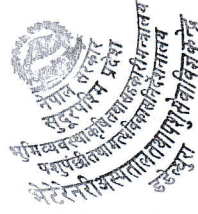 नेपाल सरकार
सुदूरपश्चिम प्रदेश
भूमि व्यवस्था कृषि तथा सहकारी मन्त्रालय
पशुपन्छी तथा मत्स्य विकास निर्देशनालय
भेटेरिनरी अस्पताल तथा पशु सेवा विज्ञ केन्द्र
डडेल्धुरा